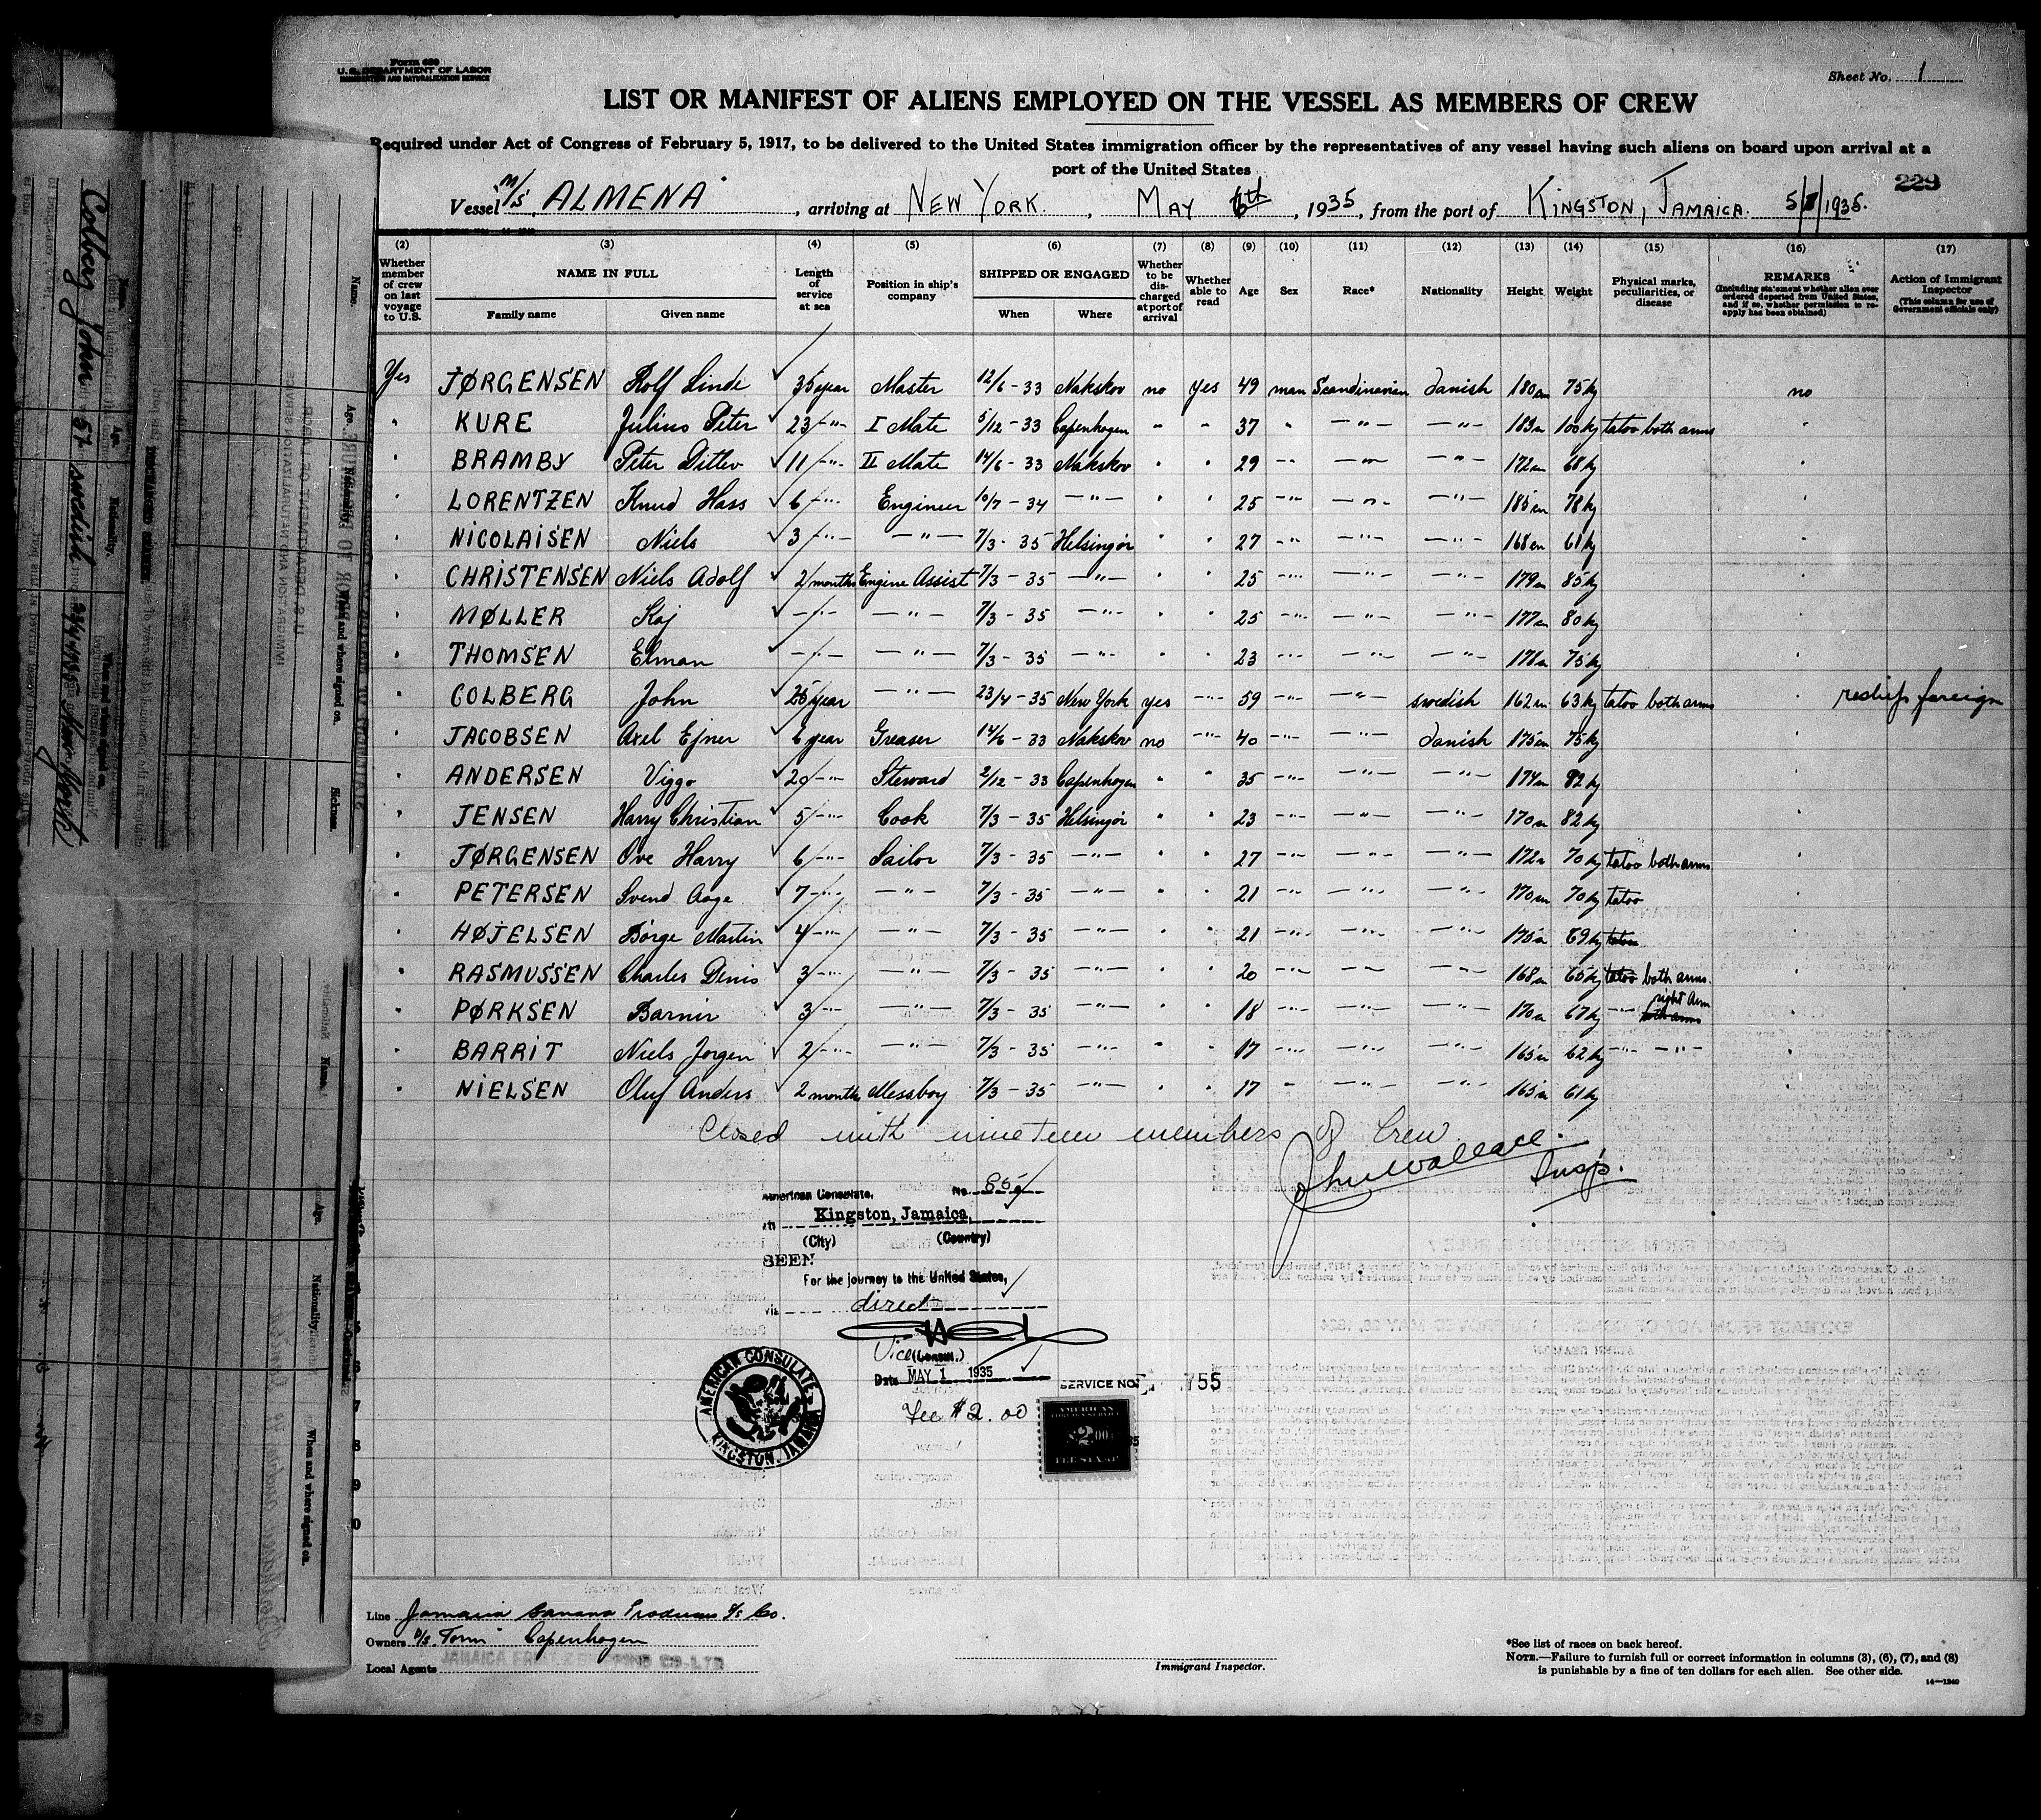 Form 689
U. S. DEPARTMENT OF LABOR
IMMIGRATION AND NATURALIZATION SERVICE
Sheet No. 1
LIST OR MANIFEST OF ALIENS EMPLOYED ON THE VESSEL AS MEMBERS OF CREW
Required under Act of Congress of February 5, 1917, to be delivered to the United States immigration officer by the representatives of any vessel having such aliens on board upon arrival at a
port of the United States
229
Vessel M/S ALMENA, arriving at NEW YORK, MAY 6th, 1935, from the port of KINGSTON, JAMAICA.
(2) (3) (4) (5) (6) (7) (8) (9) (10) (11) (12) (13) (14) (15) (16) (17)
Whether member of crew on last voyage to U.S. NAME IN FULL Family name Given name Length of service at sea Position in ship's company SHIPPED OR ENGAGED When Where Whether to be discharged at port of arrival Whether able to read Age Sex Race* Nationality Height Weight Physical marks, peculiarities, or disease REMARKS (Including statement whether alien ever ordered deported from United States, and if so, whether permission to reapply has been obtained) Action of Immigrant Inspector (This column for use of Government officials only)
Yes JØRGENSEN Rolf Linde 35 year Master 12/6 - 33 Nakskov no yes 49 man Scandinavian danish 180 cm 75 kg no
" KURE Julius Peter 23 -"- I Mate 5/12 - 33 Copenhagen " " 37 " -"- -"- 183 cm 100 kg tatoo both arms "
" BRAMBY Peter Ditlev 11 -"- II Mate 14/6 - 33 Nakskov " " 29 -"- -"- -"- 172 cm 68 kg "
" LORENTZEN Knud Hass 6 -"- Engineer 10/7 - 34 -"- " " 25 -"- -"- -"- 185 cm 78 kg "
" NICOLAISEN Niels 3 -"- -"- 7/3 - 35 Helsingör " " 27 -"- -"- -"- 168 cm 61 kg "
" CHRISTENSEN Niels Adolf 2 months Engine Assist 7/3 - 35 -"- " " 25 -"- -"- -"- 179 cm 85 kg "
" MØLLER Kaj -"- -"- 7/3 - 35 -"- " " 25 -"- -"- -"- 177 cm 80 kg "
" THOMSEN Elman -"- -"- 7/3 - 35 -"- " " 23 -"- -"- -"- 75 kg "
" COLBERG John 25 year -"- 23/4 - 35 New York yes -"- 59 -"- -"- swedish 162 cm 63 kg tatoo both arms " reship foreign
" JACOBSEN Axel Ejner 6 year Greaser 14/6 - 33 Nakskov no -"- 40 -"- -"- danish 175 cm 75 kg "
" ANDERSEN Viggo 20 -"- Steward 2/12 - 33 Copenhagen " " 35 -"- -"- -"- 174 cm 82 kg "
" JENSEN Harry Christian 5 -"- Cook 7/3 - 35 Helsingör " " 23 -"- -"- -"- 170 cm 82 kg "
" JØRGENSEN Ove Harry 6 -"- Sailor 7/3 - 35 -"- " " 27 -"- -"- -"- 172 cm 70 kg tatoo both arms "
" PETERSEN Svend Aage 7 -"- -"- 7/3 - 35 -"- " " 21 -"- -"- -"- 170 cm 70 kg tatoo "
" HØJELSEN Börge Martin 4 -"- -"- 7/3 - 35 -"- " " 21 -"- -"- -"- 175 cm 69 kg tatoo "
" RASMUSSEN Charles Denis 3 -"- -"- 7/3 - 35 -"- " " 20 -"- -"- -"- 168 cm 65 kg tatoo both arms. "
" PØRKSEN Barnir 3 -"- -"- 7/3 - 35 -"- " " 18 -"- -"- -"- 170 cm 67 kg -"- both arms right Arm "
" BARRIT Niels Jorgen 2 -"- -"- 7/3 - 35 -"- " " 17 -"- -"- -"- 165 cm 62 kg -"- -"- "
" NIELSEN Oluf Anders 2 months Messboy 7/3 - 35 -"- " " 17 " -"- -"- 165 cm 61 kg "
Closed with nineteen members of Crew
John Wallace.
Insp.
American Consulate, No.
at Kingston, Jamaica,
(City) (Country)
SEEN
For the journey to the United States,
via direct
Vice (Consul.)
Date MAY 1 1935
SERVICE NO. 755
Fee $2.00
AMERICAN CONSULATE
KINGSTON, JAMAICA
AMERICAN
FOREIGN SERVICE
$2.00
FEE STAMP
Line Jamaica Banana Producers S/S Co.
Owners D/S. Torm Copenhagen
Local Agents JAMAICA FRUIT & SHIPPING CO-LTD
Immigrant Inspector.
*See list of races on back hereof.
NOTE.—Failure to furnish full or correct information in columns (3), (6), (7), and (8)
is punishable by a fine of ten dollars for each alien. See other side.
14—1240
Colberg John
swedish
New York